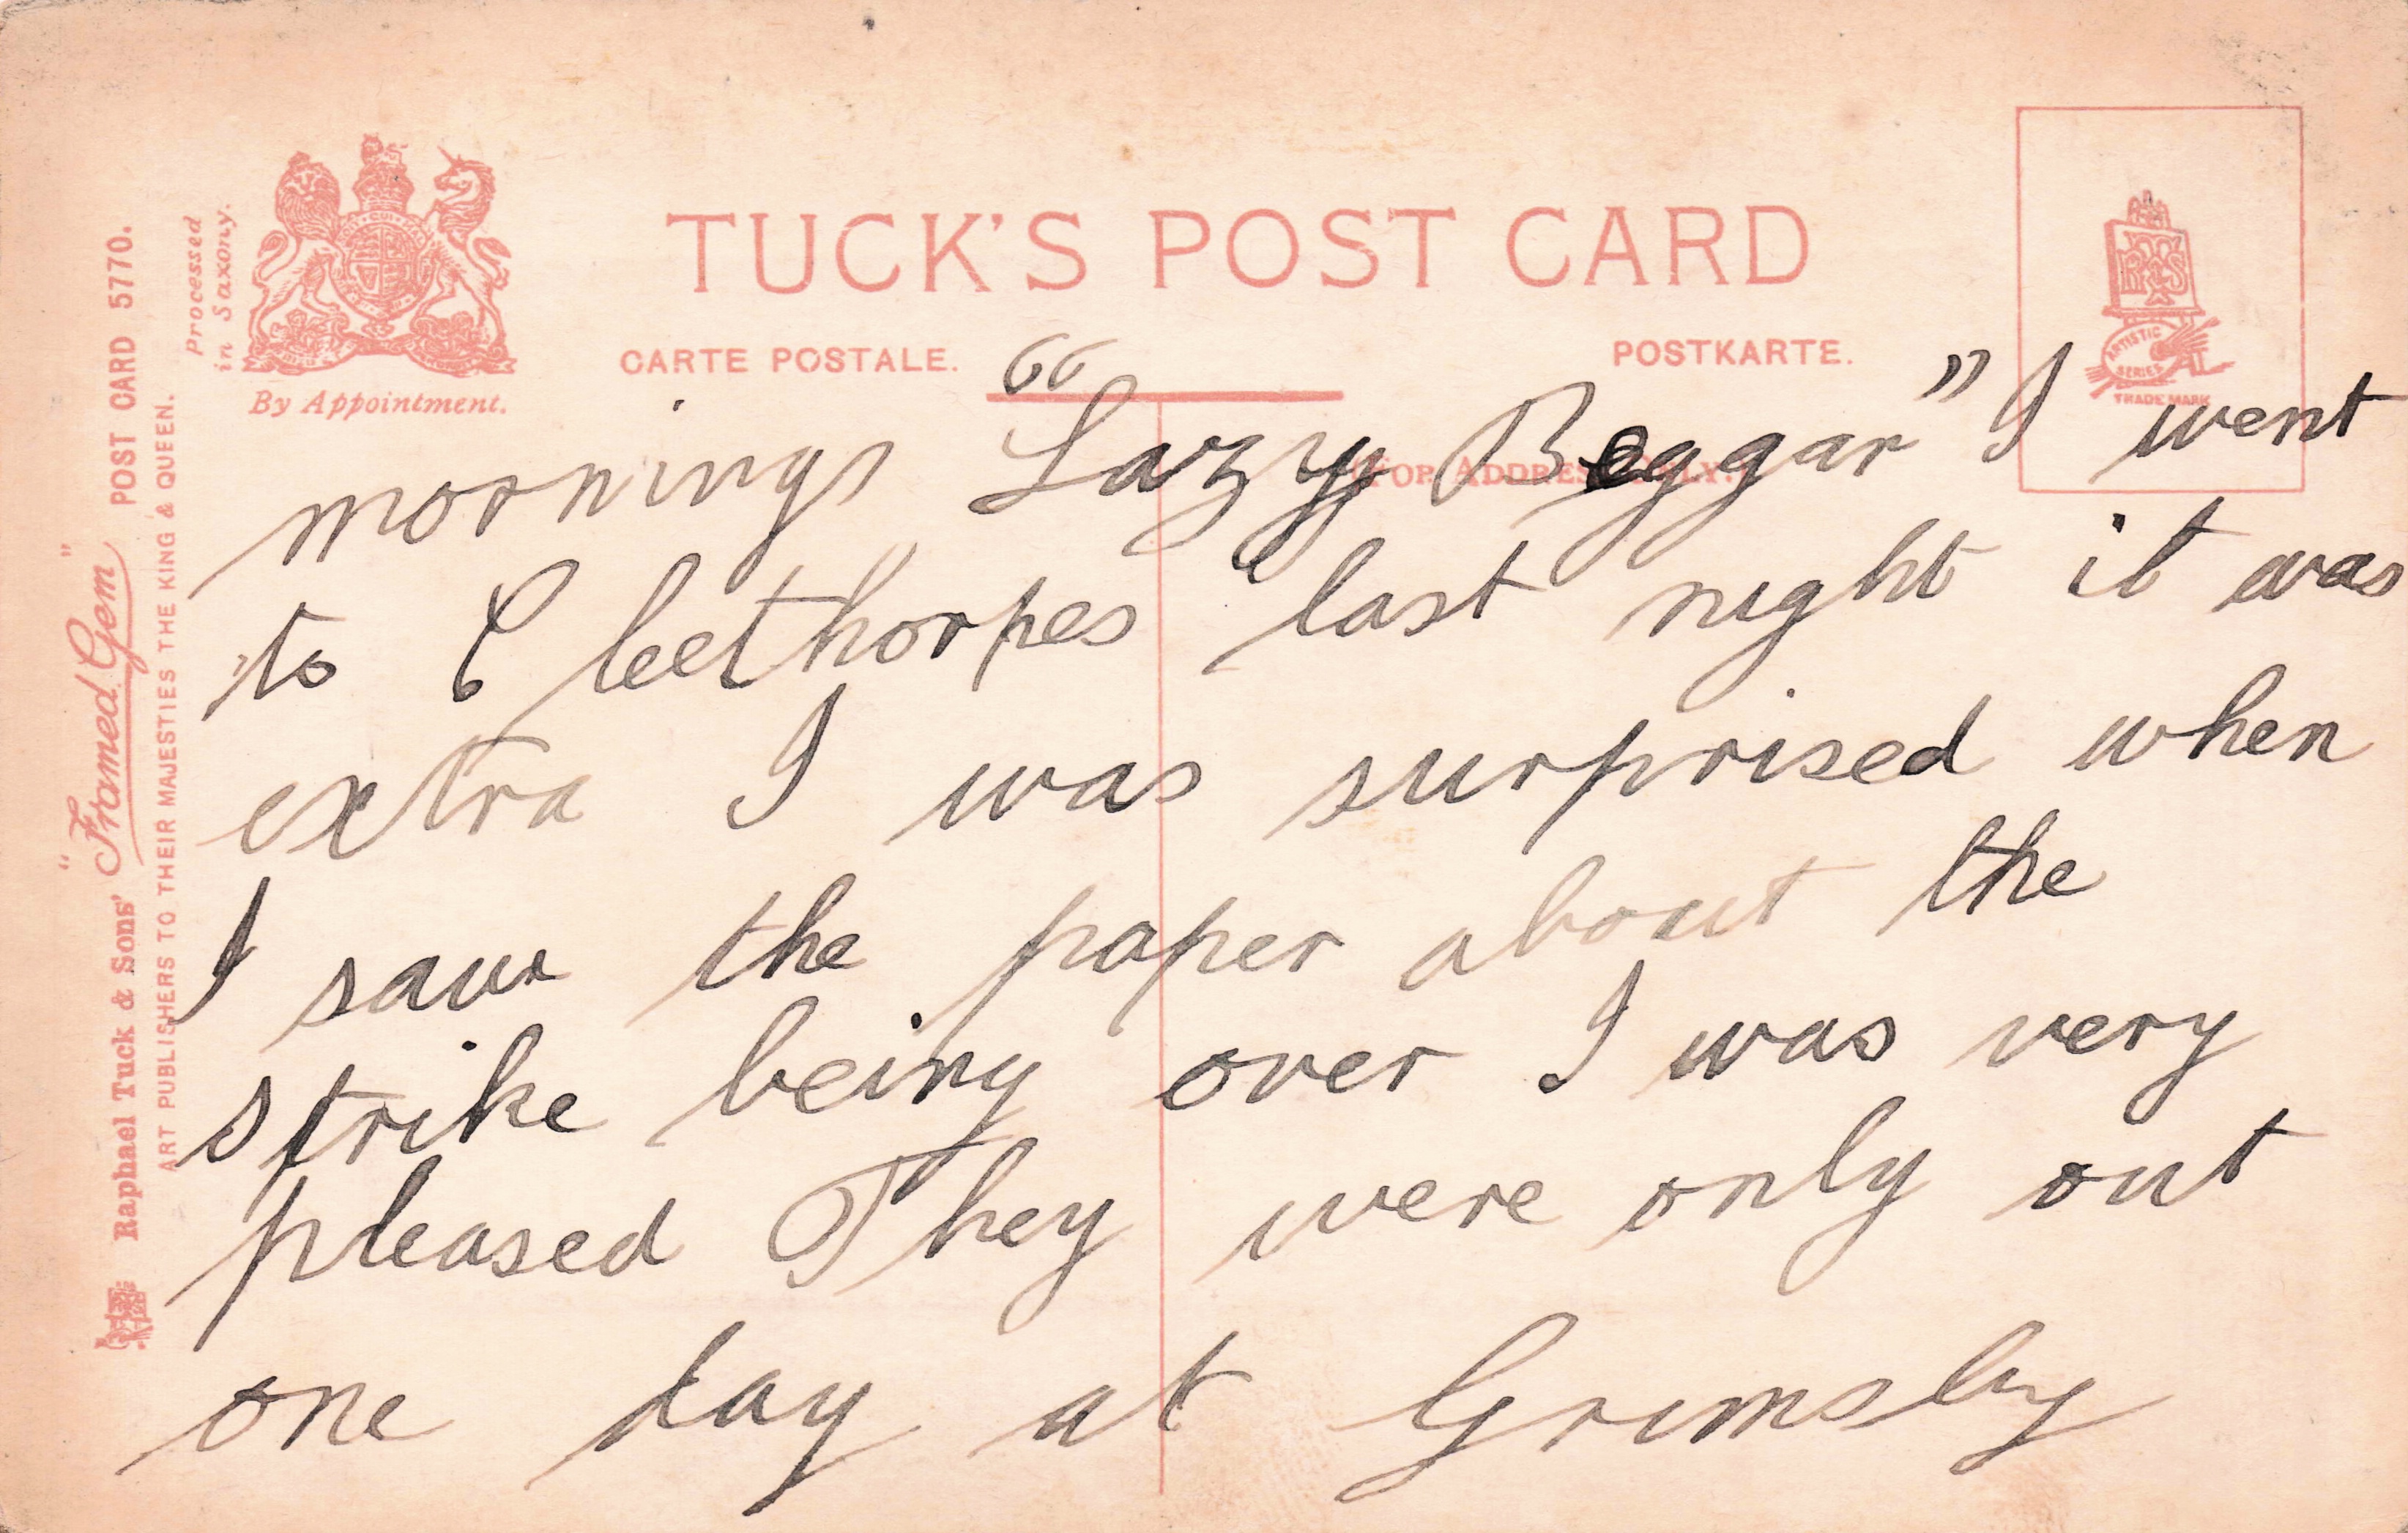 TUCK'S POST CARD
CARTE POSTALE.
POSTKARTE.
By Appointment.
Processed
in Saxony.
Raphael Tuck & Sons' "Framed Gem" POST CARD 5770.
ART PUBLISHERS TO THEIR MAJESTIES THE KING & QUEEN.
(FOR ADDRESS ONLY.)
ARTISTIC
SERIES
TRADE MARK
mornings "Lazy Beggar" I went
to Cleethorpes last night it was
extra I was surprised when
I saw the paper about the
strike being over I was very
pleased They were only out
one day at Grimsby